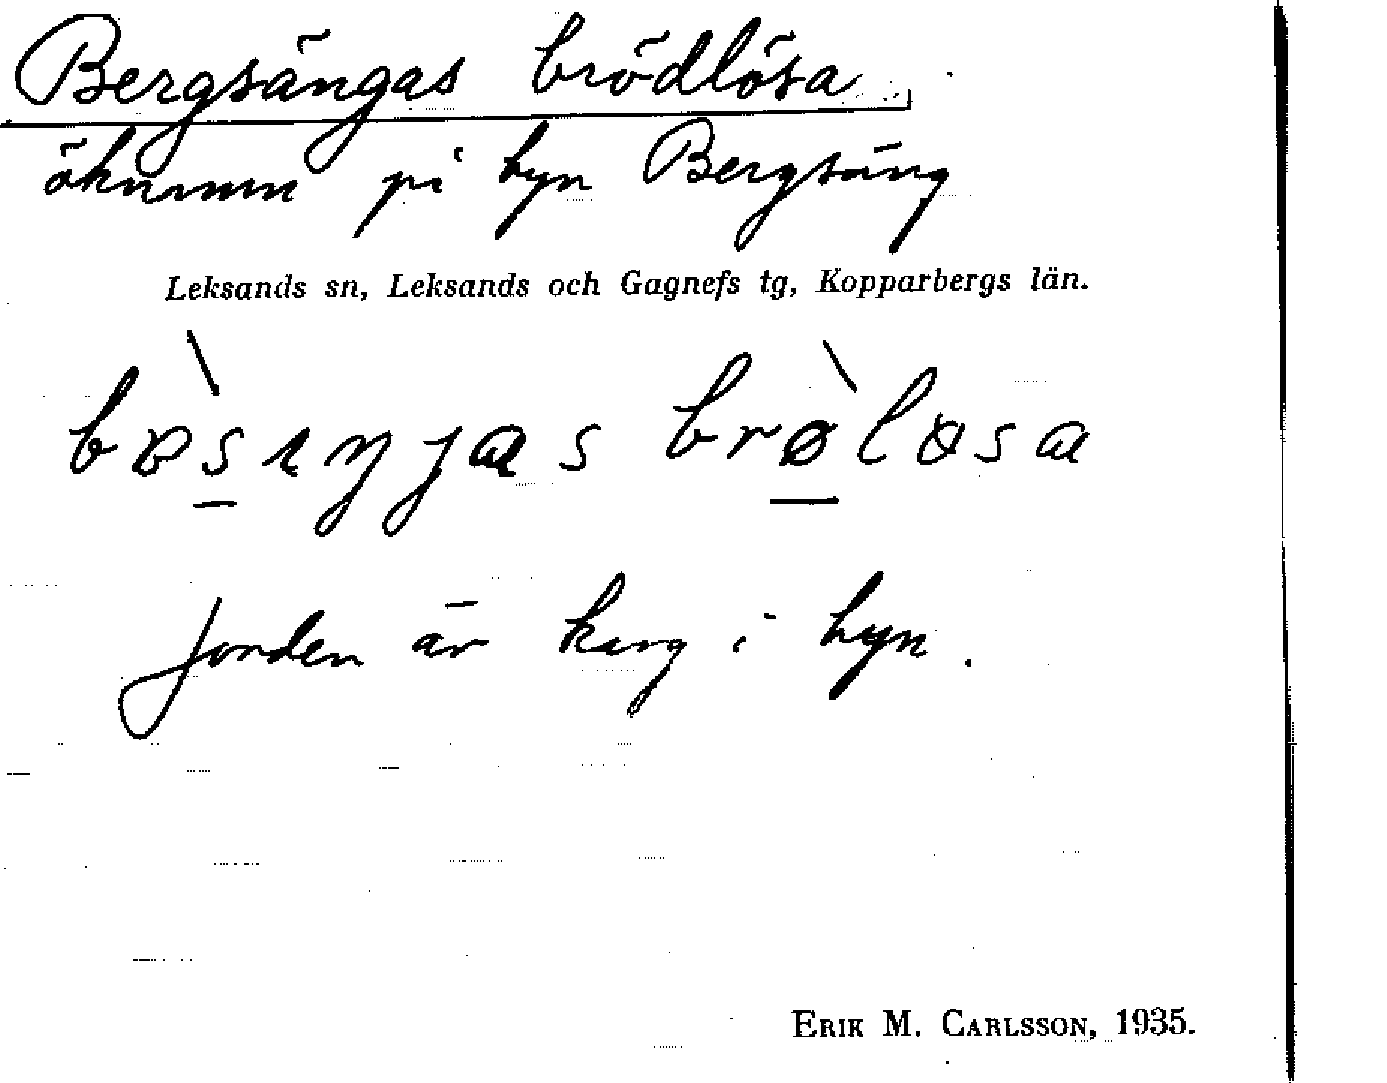 Bergsängas brödlösa
öknamn på byn Bergsäng
Leksands sn, Leksands och Gagnefs tg, Kopparbergs län.
brøløsa
Jorden är karg i byn.
ERIK M. CARLSSON, 1935.